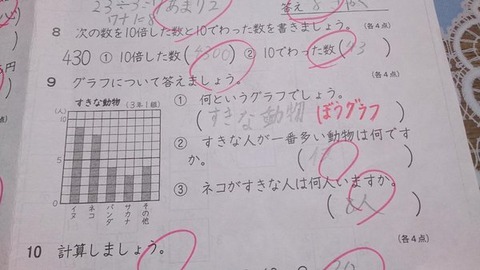 23÷3=
あまり2
答え
17+1=8
8 次の数を10倍した数と10でわった数を書きましょう。(各4点)
430 ① 10倍した数(4300) ② 10でわった数(43)
9 グラフについて答えましょう。(各4点)
すきな動物 (3年1組)
(人)
10
5
0
イヌ
ネコ
パンダ
サカナ
その他
① 何というグラフでしょう。
(すきな動物 ぼうグラフ)
② すきな人が一番多い動物は何です
か。
③ ネコがすきな人は何人いますか。
(8人)
10 計算しましょう。(各4点)